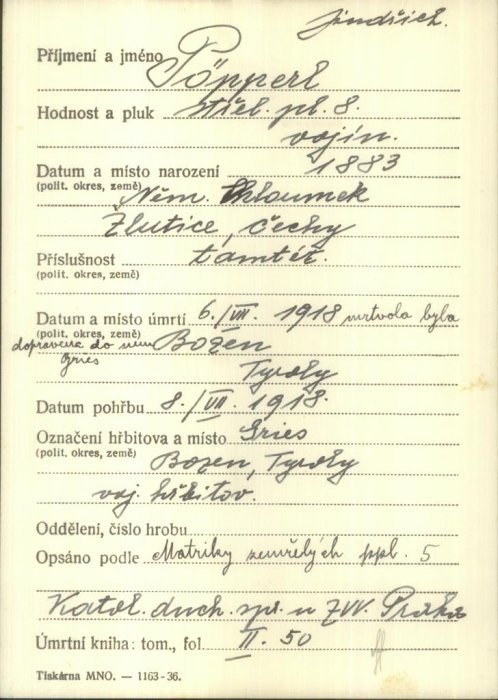 Jindřich.
Příjmení a jméno Pöpperl
Hodnost a pluk střel. pl. 8.
vojín.
Datum a místo narození 1883
(polit. okres, země) Něm. Chloumek
Žlutice, Čechy
Příslušnost tamtéž.
(polit. okres, země)
Datum a místo úmrtí 6./VII. 1918 mrtvola byla
(polit. okres, země) Bozen
dopravena do nem
Gries
Tyroly
Datum pohřbu 8./VII. 1918.
Označení hřbitova a místo Gries
(polit. okres, země) Bozen, Tyroly
voj. hřbitov.
Oddělení, číslo hrobu
Opsáno podle Matriky zemřelých ppl. 5
Katol. duch. spr. u ZVV. Praha
Úmrtní kniha: tom., fol II. 50
Tiskárna MNO. — 1163-36.